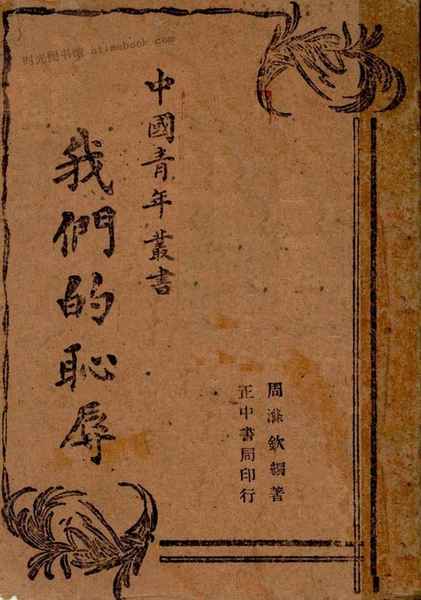 时光图书馆 atimebook.com
中國青年叢書
我們的恥辱
周滌欽編著
正中書局印行